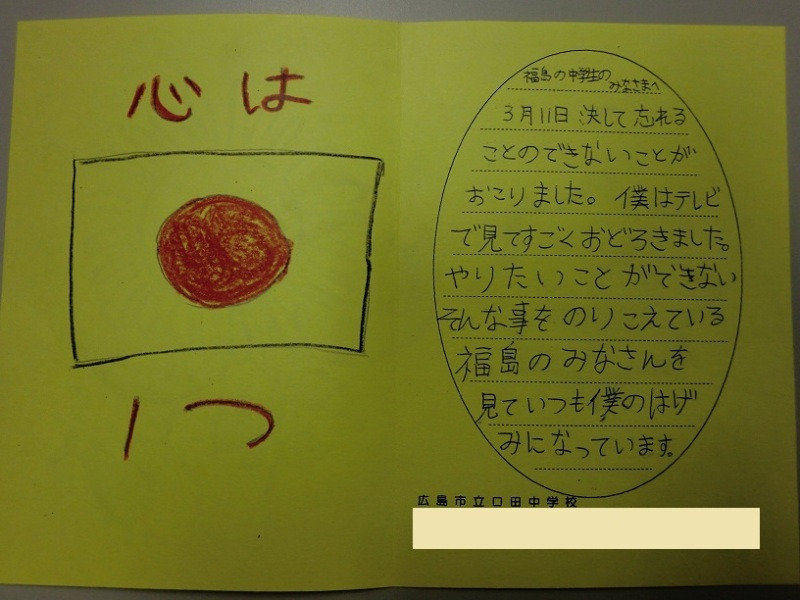 心は
1つ
福島の中学生の
みなさまへ
3月11日 決して忘れる
ことのできないことが
おこりました。僕はテレビ
で見てすごくおどろきました。
やりたいことができない
そんな事をのりこえている
福島のみなさんを
見ていつも僕のはげ
みになっています。
広島市立口田中学校